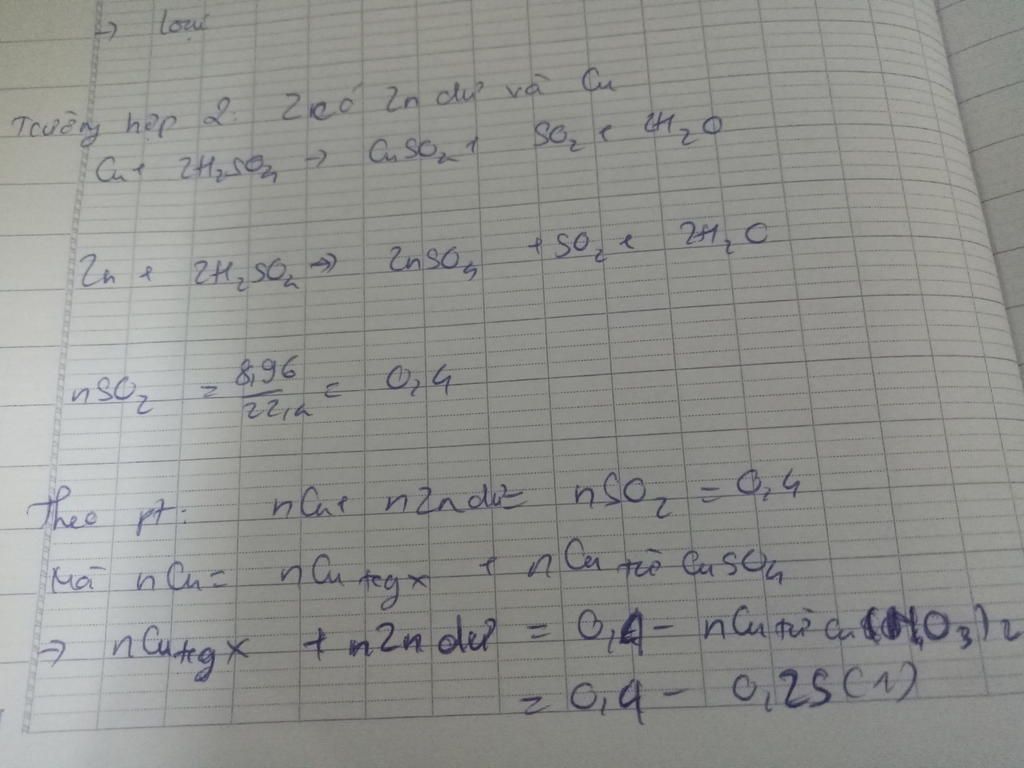 → loại
Trường hợp 2: Z có Zn dư và Cu
Cu + 2H₂SO₄ → CuSO₄ + SO₂ + 2H₂O
Zn + 2H₂SO₄ → ZnSO₄ + SO₂ + 2H₂O
nSO₂ = 8,96 / 22,4 = 0,4
Theo pt: nCu + nZn dư = nSO₂ = 0,4
Mà nCu = nCu trg X + nCu từ CuSO₄
→ nCu trg X + nZn dư = 0,4 - nCu từ Cu(NO₃)₂
= 0,4 - 0,25 (1)